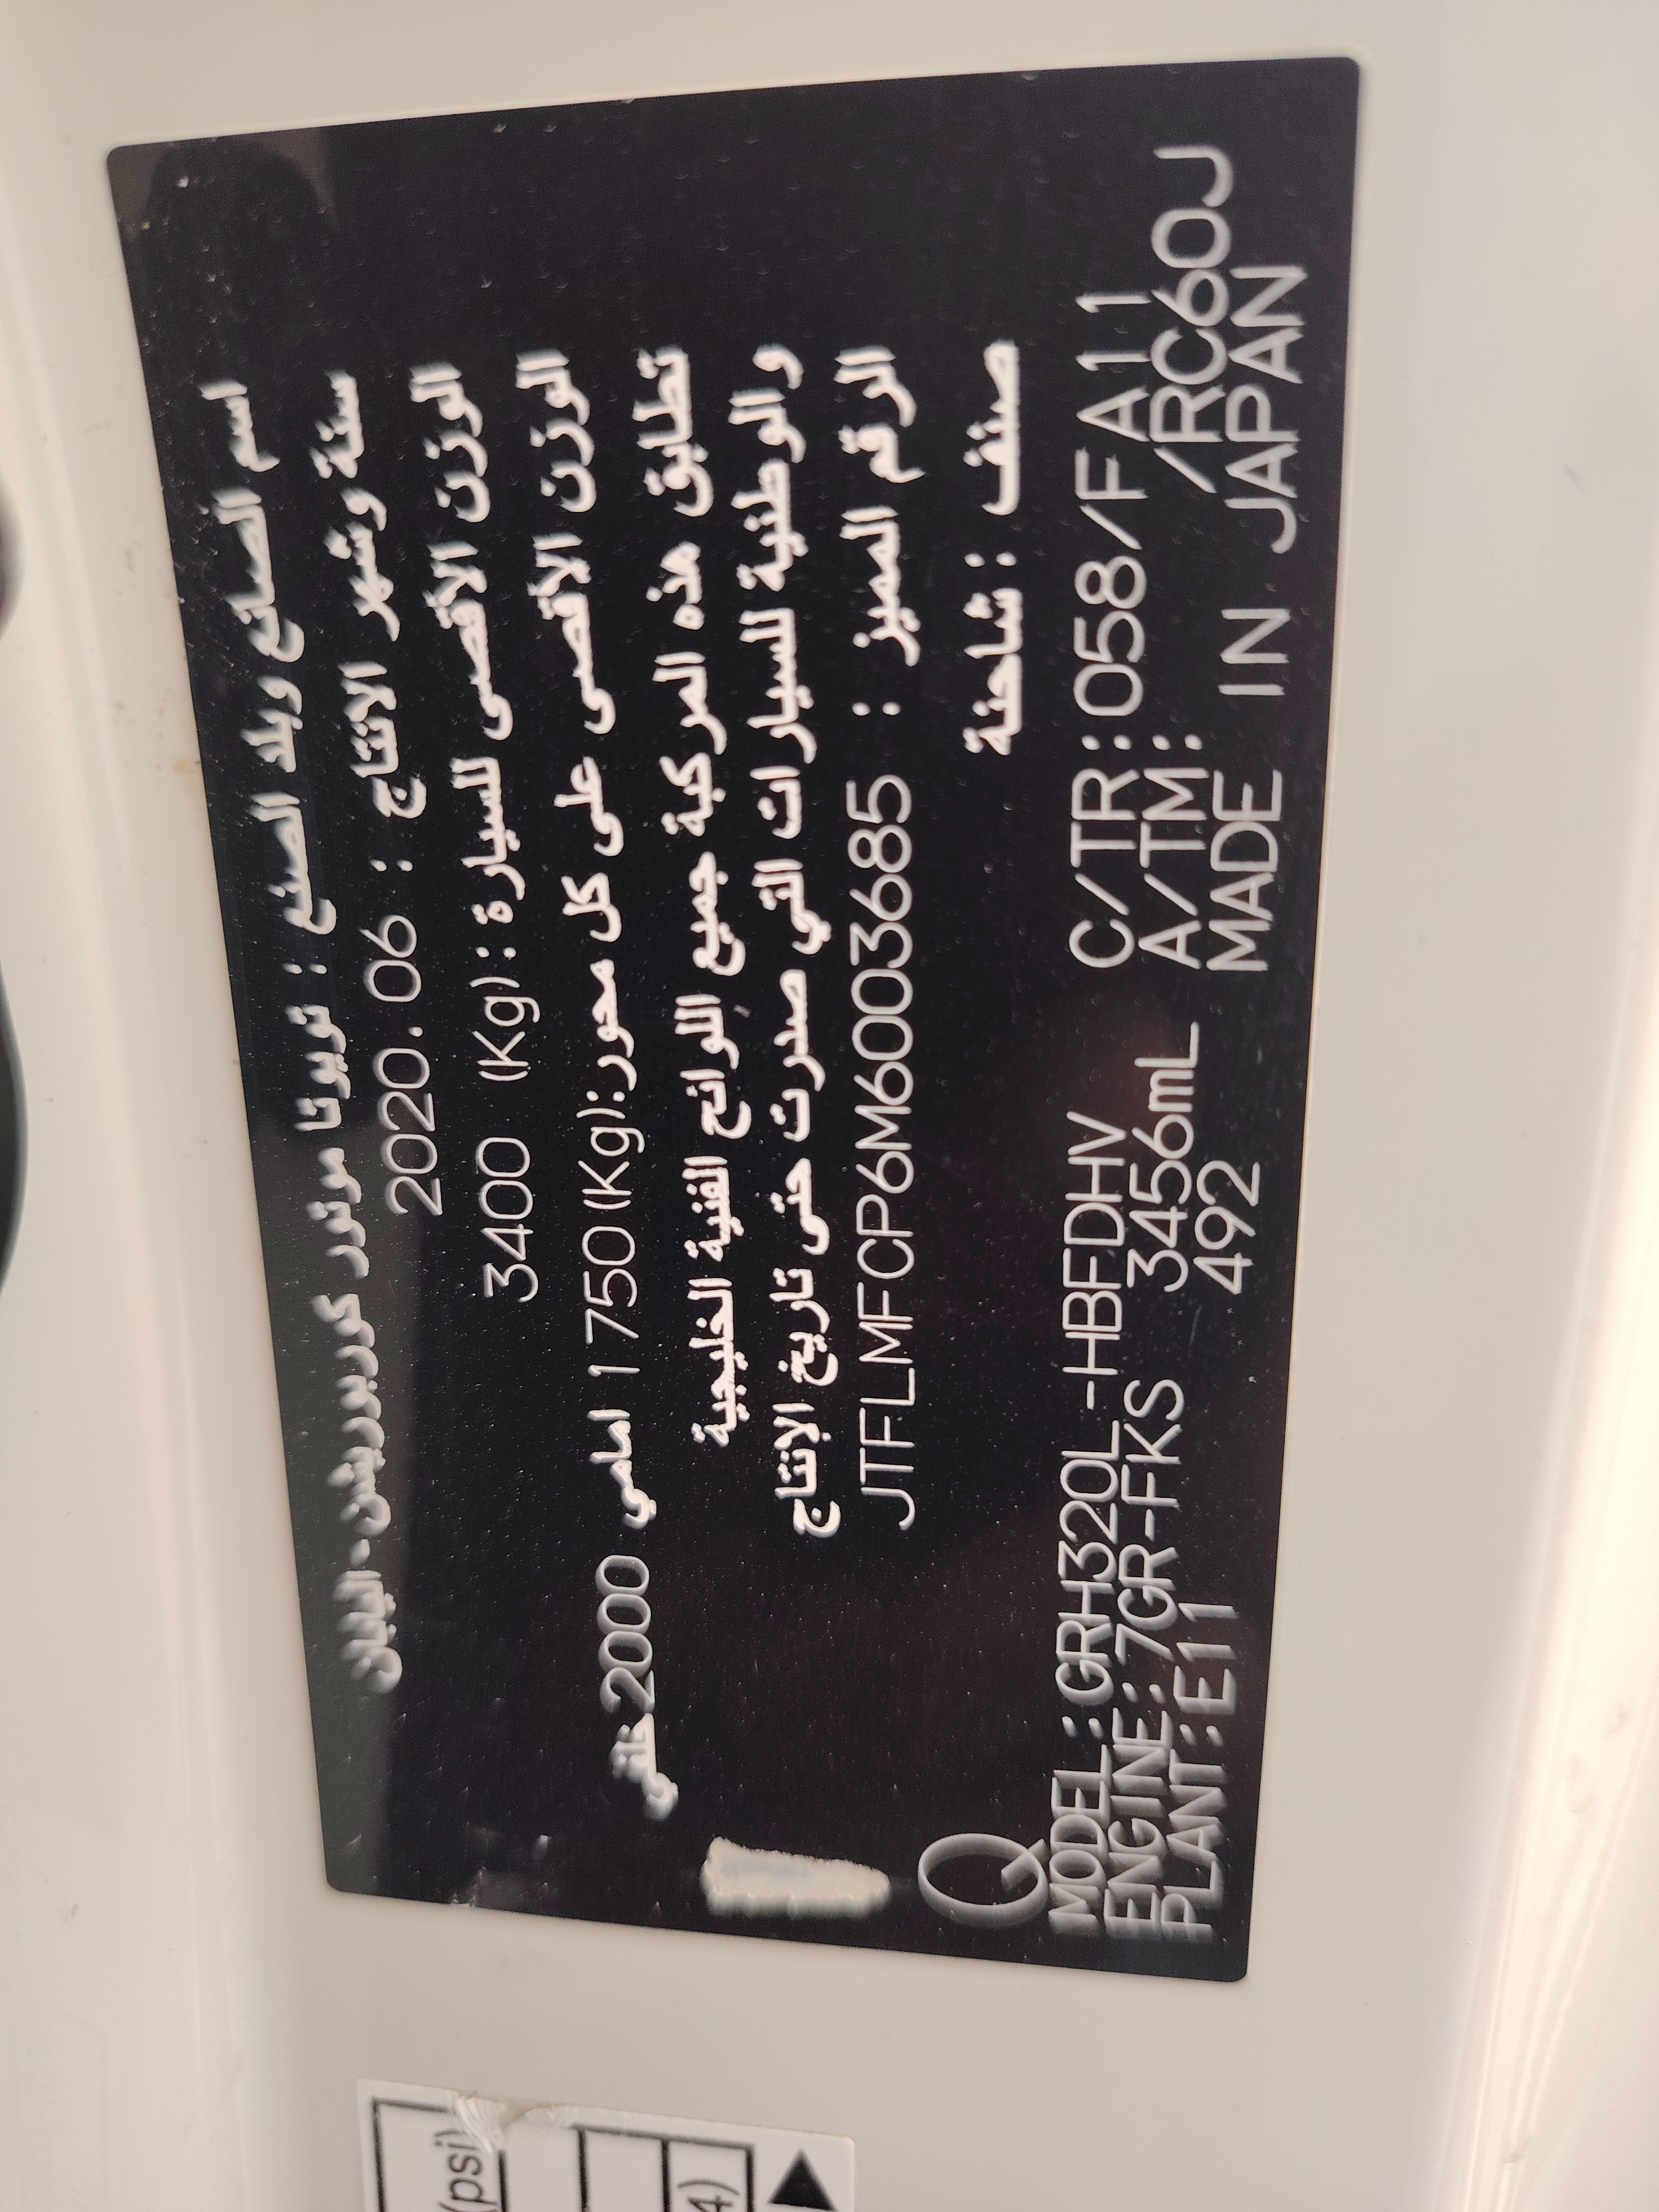 اسم الصانع وبلد الصنع : تويوتا موتور كوربوريشن-اليابان
سنة وشهر الانتاج : 2020.06
الوزن الأقصى للسيارة :(Kg) 3400
الوزن الأقصى على كل محور:(Kg) 1750 امامي 2000خلفي
تطابق هذه المركبة جميع اللوائح الفنية الخليجية
و الوطنية للسيارات التي صدرت حتى تاريخ الإنتاج
الرقم المميز : JTFLMFCP6M6003685
صنف : شاحنة
Q
MODEL:GRH320L-HBFDHV C/TR:058/FA11
ENGINE:7GR-FKS 3456mL A/TM: /RC60J
PLANT:E11 492 MADE IN JAPAN
(psi)
4)